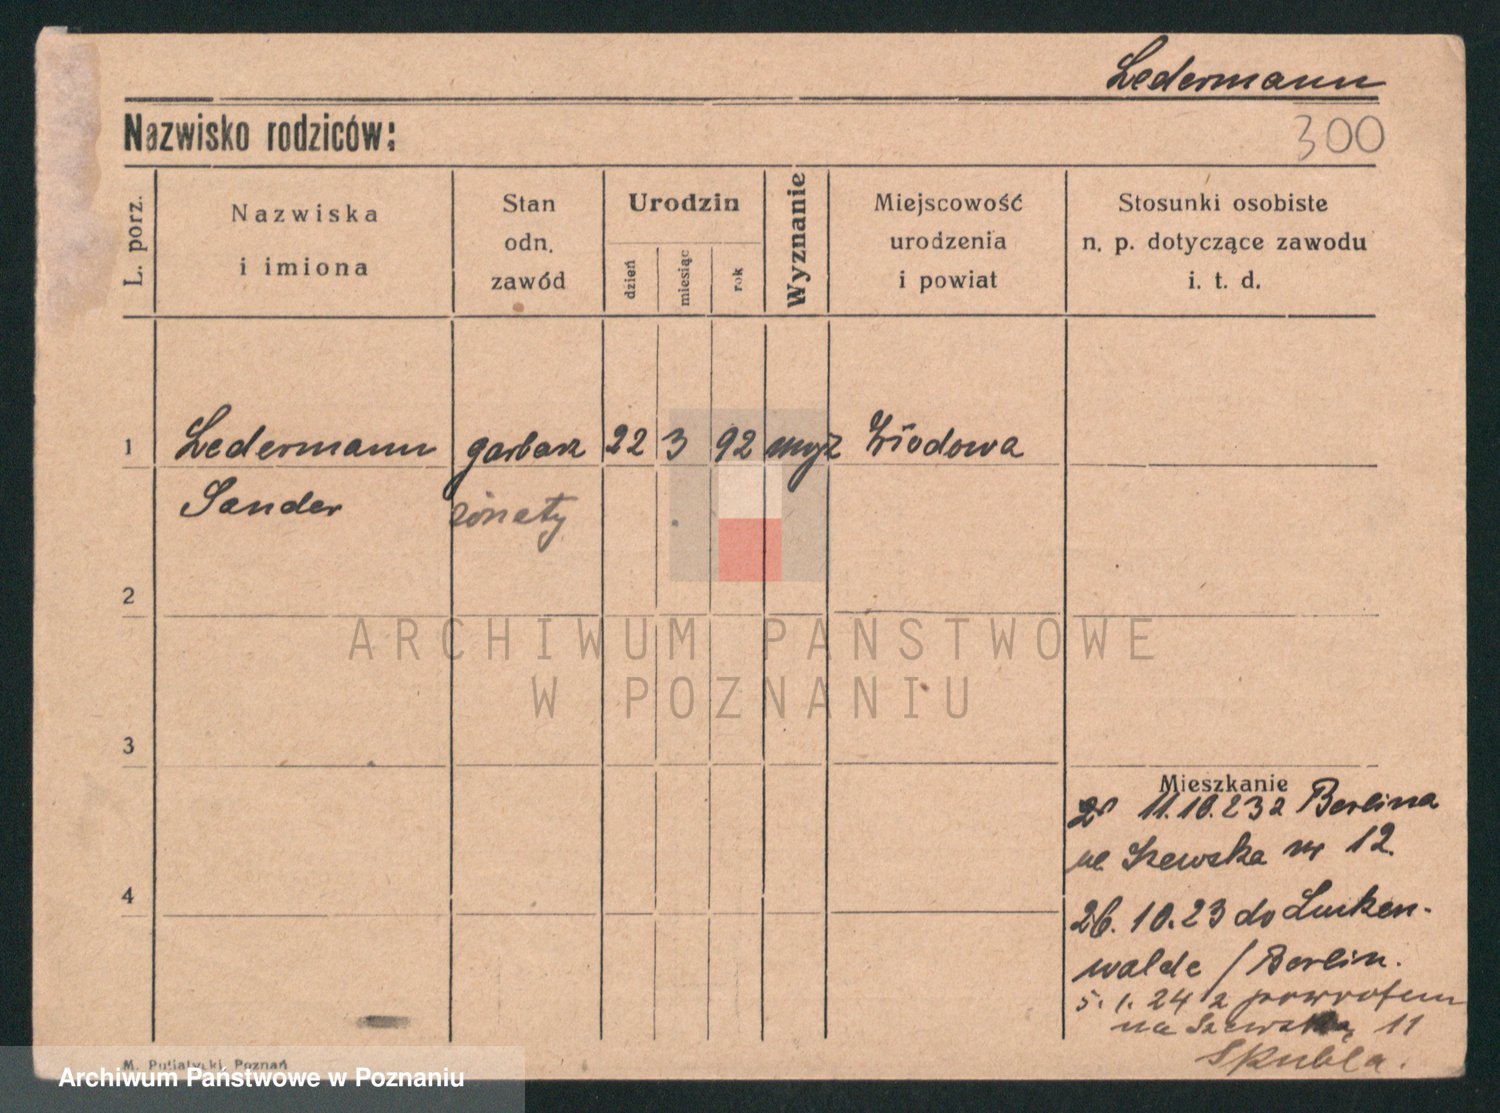 Ledermann
Nazwisko rodziców:
300
L. porz.
Nazwiska
i imiona
Stan
odn.
zawód
Urodzin
dzień
miesiąc
rok
Wyznanie
Miejscowość
urodzenia
i powiat
Stosunki osobiste
n. p. dotyczące zawodu
i. t. d.
1 Ledermann garbarz 22 3 92 mojż Włodowa
Sander żonaty
2
ARCHIWUM PAŃSTWOWE
W POZNANIU
3
Mieszkanie
11.10.23 z Berlina
ul. Szewska nr 12
4
26.10.23 do Lucken-
walde / Berlin.
5.1.24 z powrotem
na Szewską 11
M. Putiatycki, Poznań
Archiwum Państwowe w Poznaniu